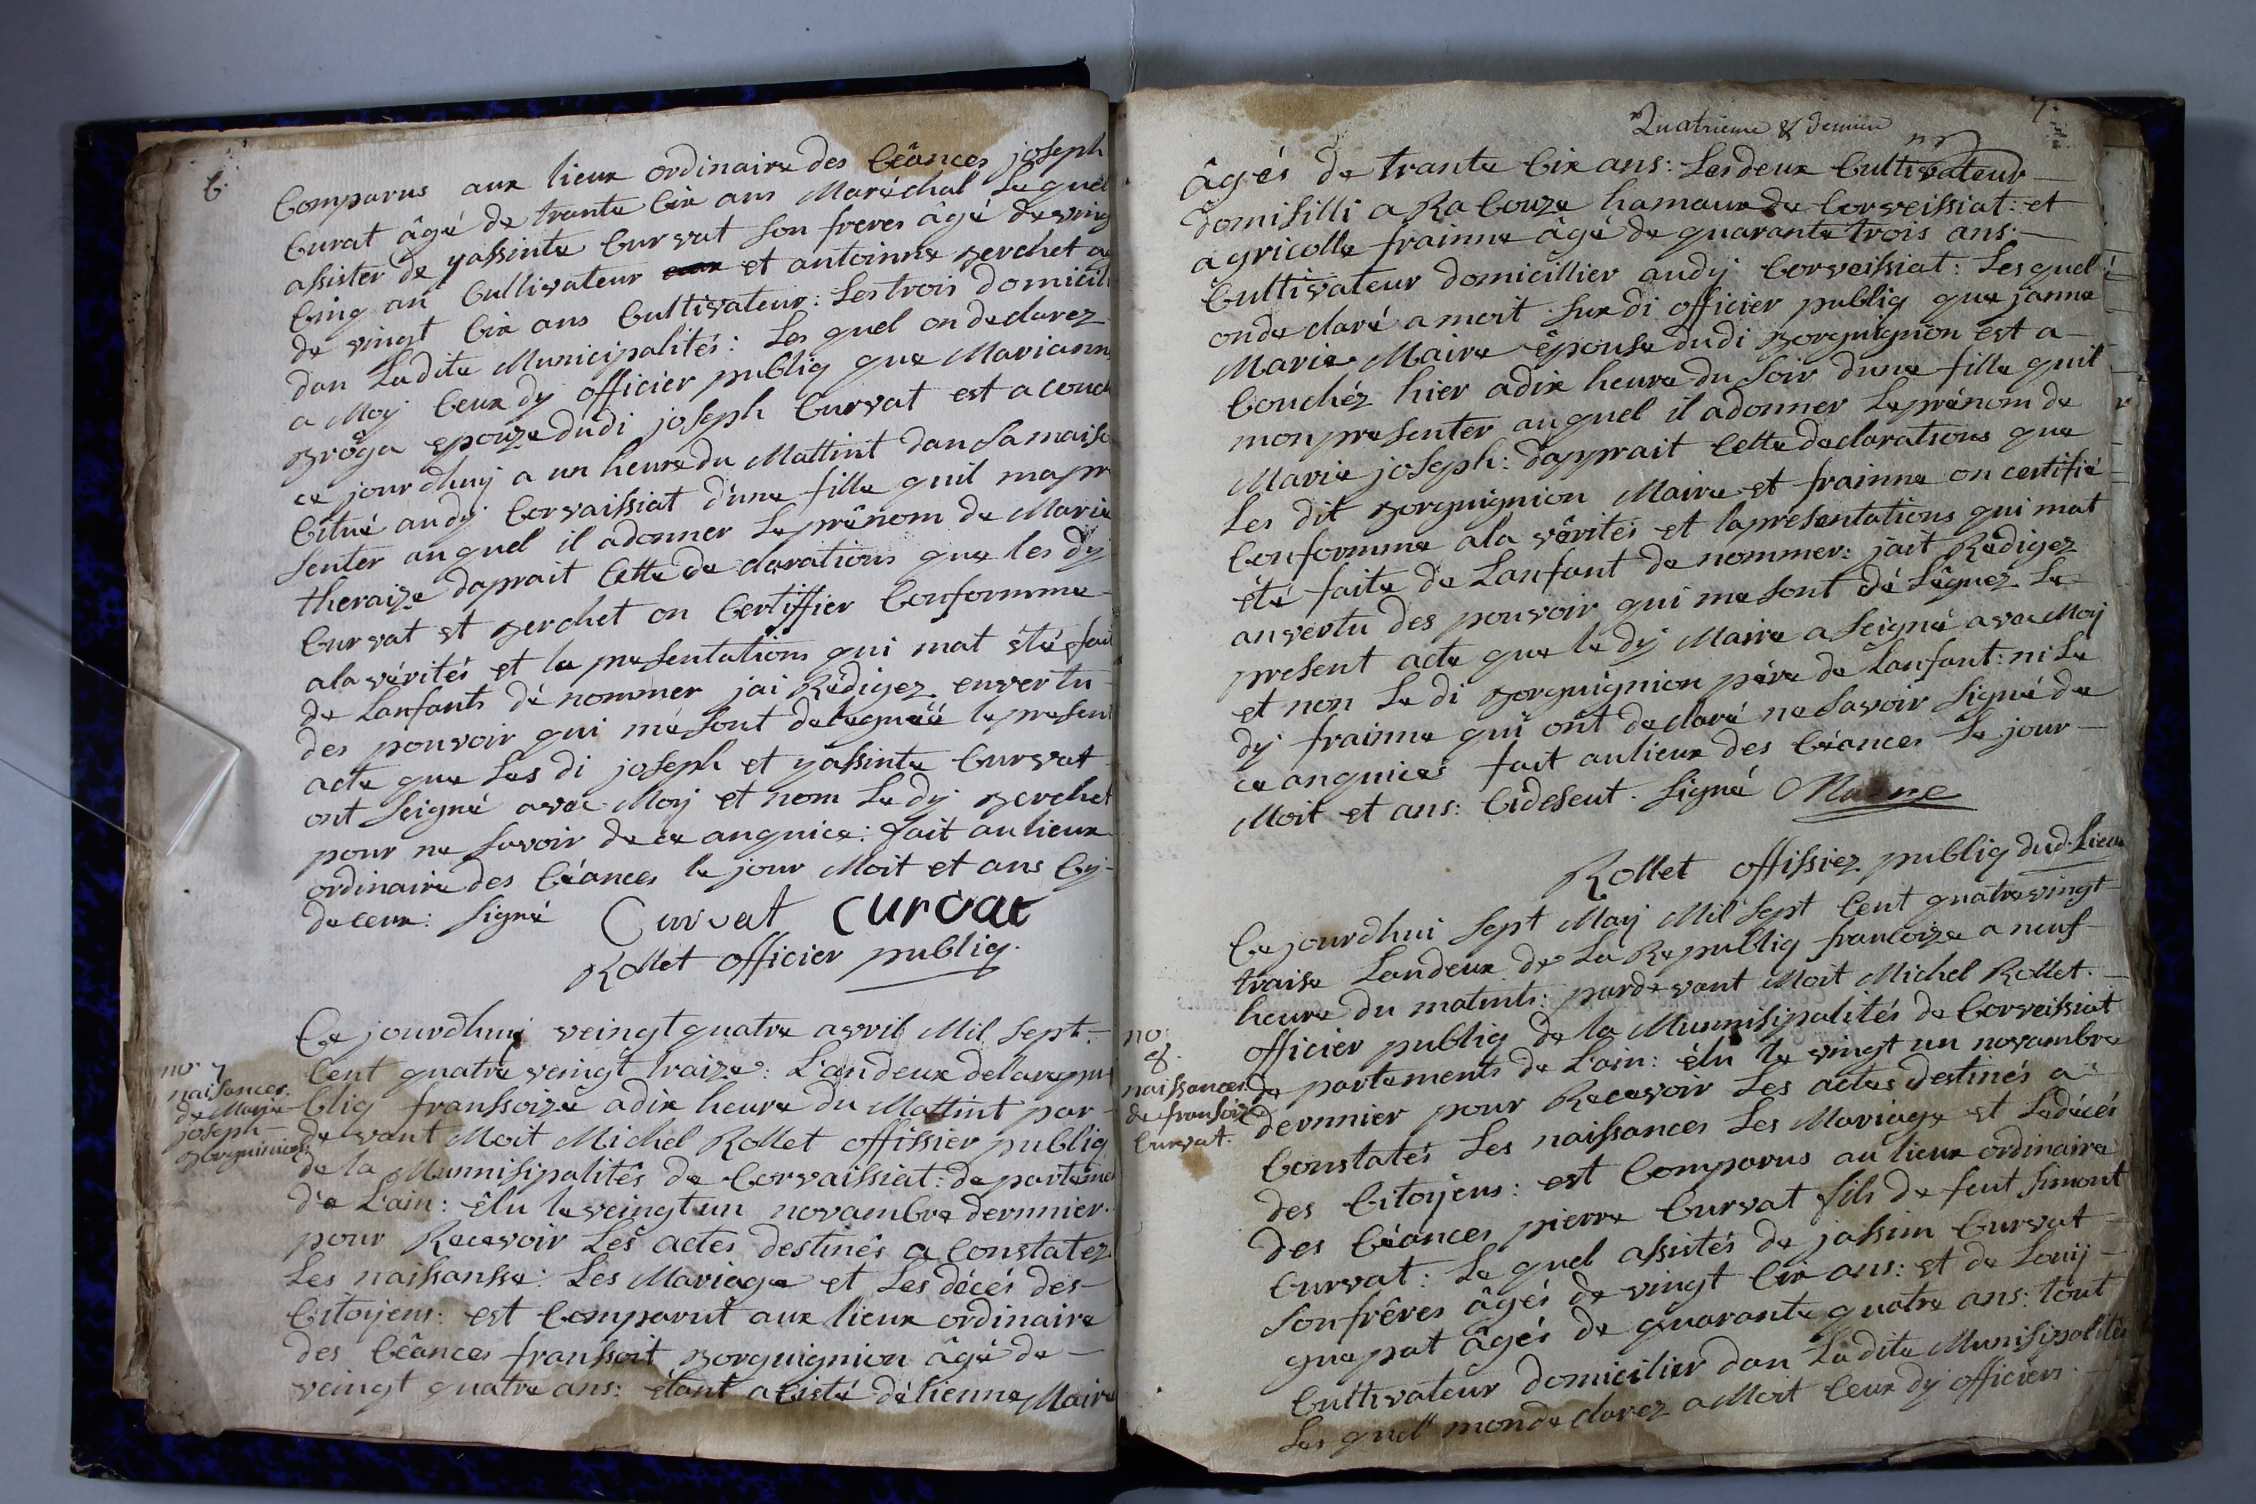 6.
Comparus aux lieux ordinaire des Céances joseph
Curat âgé de trante Cix ans Maréchal Le quel
assister de yassinte Curvat son freres âgé de ving
Cinq an Cultivateur et antoinne Berchet a
de vingt Cix ans Cultivateur: Les trois domicili
dan Ladite Municipalités: Les quel on declarez
a Moy Ceux dy officier publiq que Mariann
Broga epouze dudi joseph Curvat est acouch
ce jourdhuy a un heure du Mattint dan samaiso
Citué audy Corvaissiat d'une fille quil mapre
senter auquel il adonner Le prénom de Marie
theraize daprait Cette declarations que les dy
Curvat et Berchet on Certiffier Conformme
ala vérités et la presentations qui mat été fait
de Lanfants dé nommer jai Rédigez envertu
des pouvoir qui me sont deleguéé le present
acte que Les di joseph et yassinte Curvat
ont Seigné avec Moy et nom Le dy Berchet
pour ne savoir de ce anquice: fait au lieux
ordinaire des Céances le jour Moit et ans Cy-
deceux: Signé Curvat Curvat
Rollet officier publiq.
no 7
naisances
de Marie
joseph
Borguinion
Ce jourdhuy veingt quatre avril Mil Sept-
Cent quatre veingt traize: L'andeux delarepu
bliq franssoize adix heure du Mattint par-
de vant Moit Michel Rollet offissier publiq
de la Munnisipalités de Corvaissiat: departeme
de L'ain: élu le veingt un novambre dernnier.
pour Recevoir Les actes destinés a Constatez
Les naissansse: Les Mariage et Les décés des-
Citoyens: est Comparut aux lieux ordinaire
des Céances franssoit Borguignion âgé de-
veingt quatre ans: étant acisté détienne Maire
7.
Quatrieme & dernier
âgés de trante Cix ans: Les deux Cultivateur
domisilli a Racouze hamaux de Corveissiat: et
agricolle frainne âgé de quarante trois ans:-
Cultivateur domicillier audy Corveissiat: Les quel
onde claré a moit Sux di officier publiq que janne
Marie Maire épouse dudi Borguignion est a-
Couchéz hier adix heure du Soir dune fille quil
mon presenter auquel il adonner Le prénom de
Marie joseph: dapprait Cette declarations que
Les dit Borguignion Maire et frainne on certifié
Conformme ala vérités et lapresentations qui mat
été faite de Lanfant de nommer: jait Rédigez
anvertu des pouvoir qui me sont dé légnez Le
present acte que le dy Maire a Seigné avac Moy
et non Le di Borguignion pére de Lanfant: ni Le
dy frainne qui ont declaré ne Savoir Signé de
ce anquices fait aulieux des Céances Le jour-
Moit et ans: Cideseut. Signé Maire
Rollet offissiez publiq dud. Lieux
no.
8.
naissances
de fransoize
Curvat.
Ce jourdhui Sept May Mil Sept Cent quatre vingt
traise Landeux de La Republiq francoize a neuf-
heure du matints: pardevant Moit Michel Rollet.-
officier publiq de la Munnisipalités de Corveissiat
de partements de L'ain: élu le vingt un novambre
dernnier pour Recevoir Les actes destinés a-
Constatés Les naissances Les Mariage et Ledécés
des Citoyens: est Comparus au lieux ordinaire
des Céances pierre Curvat fils de feut Simont
Curvat: Le quel assistés de jassim Curvat-
Son frêres âgés de vingt Cix ans: et de Louy-
guepat âgés de quarante quatre ans: tout
Cultivateur domicilier dan Ladite Munisipalités
Les quel monde clarez a Moit Ceux dy officiers.